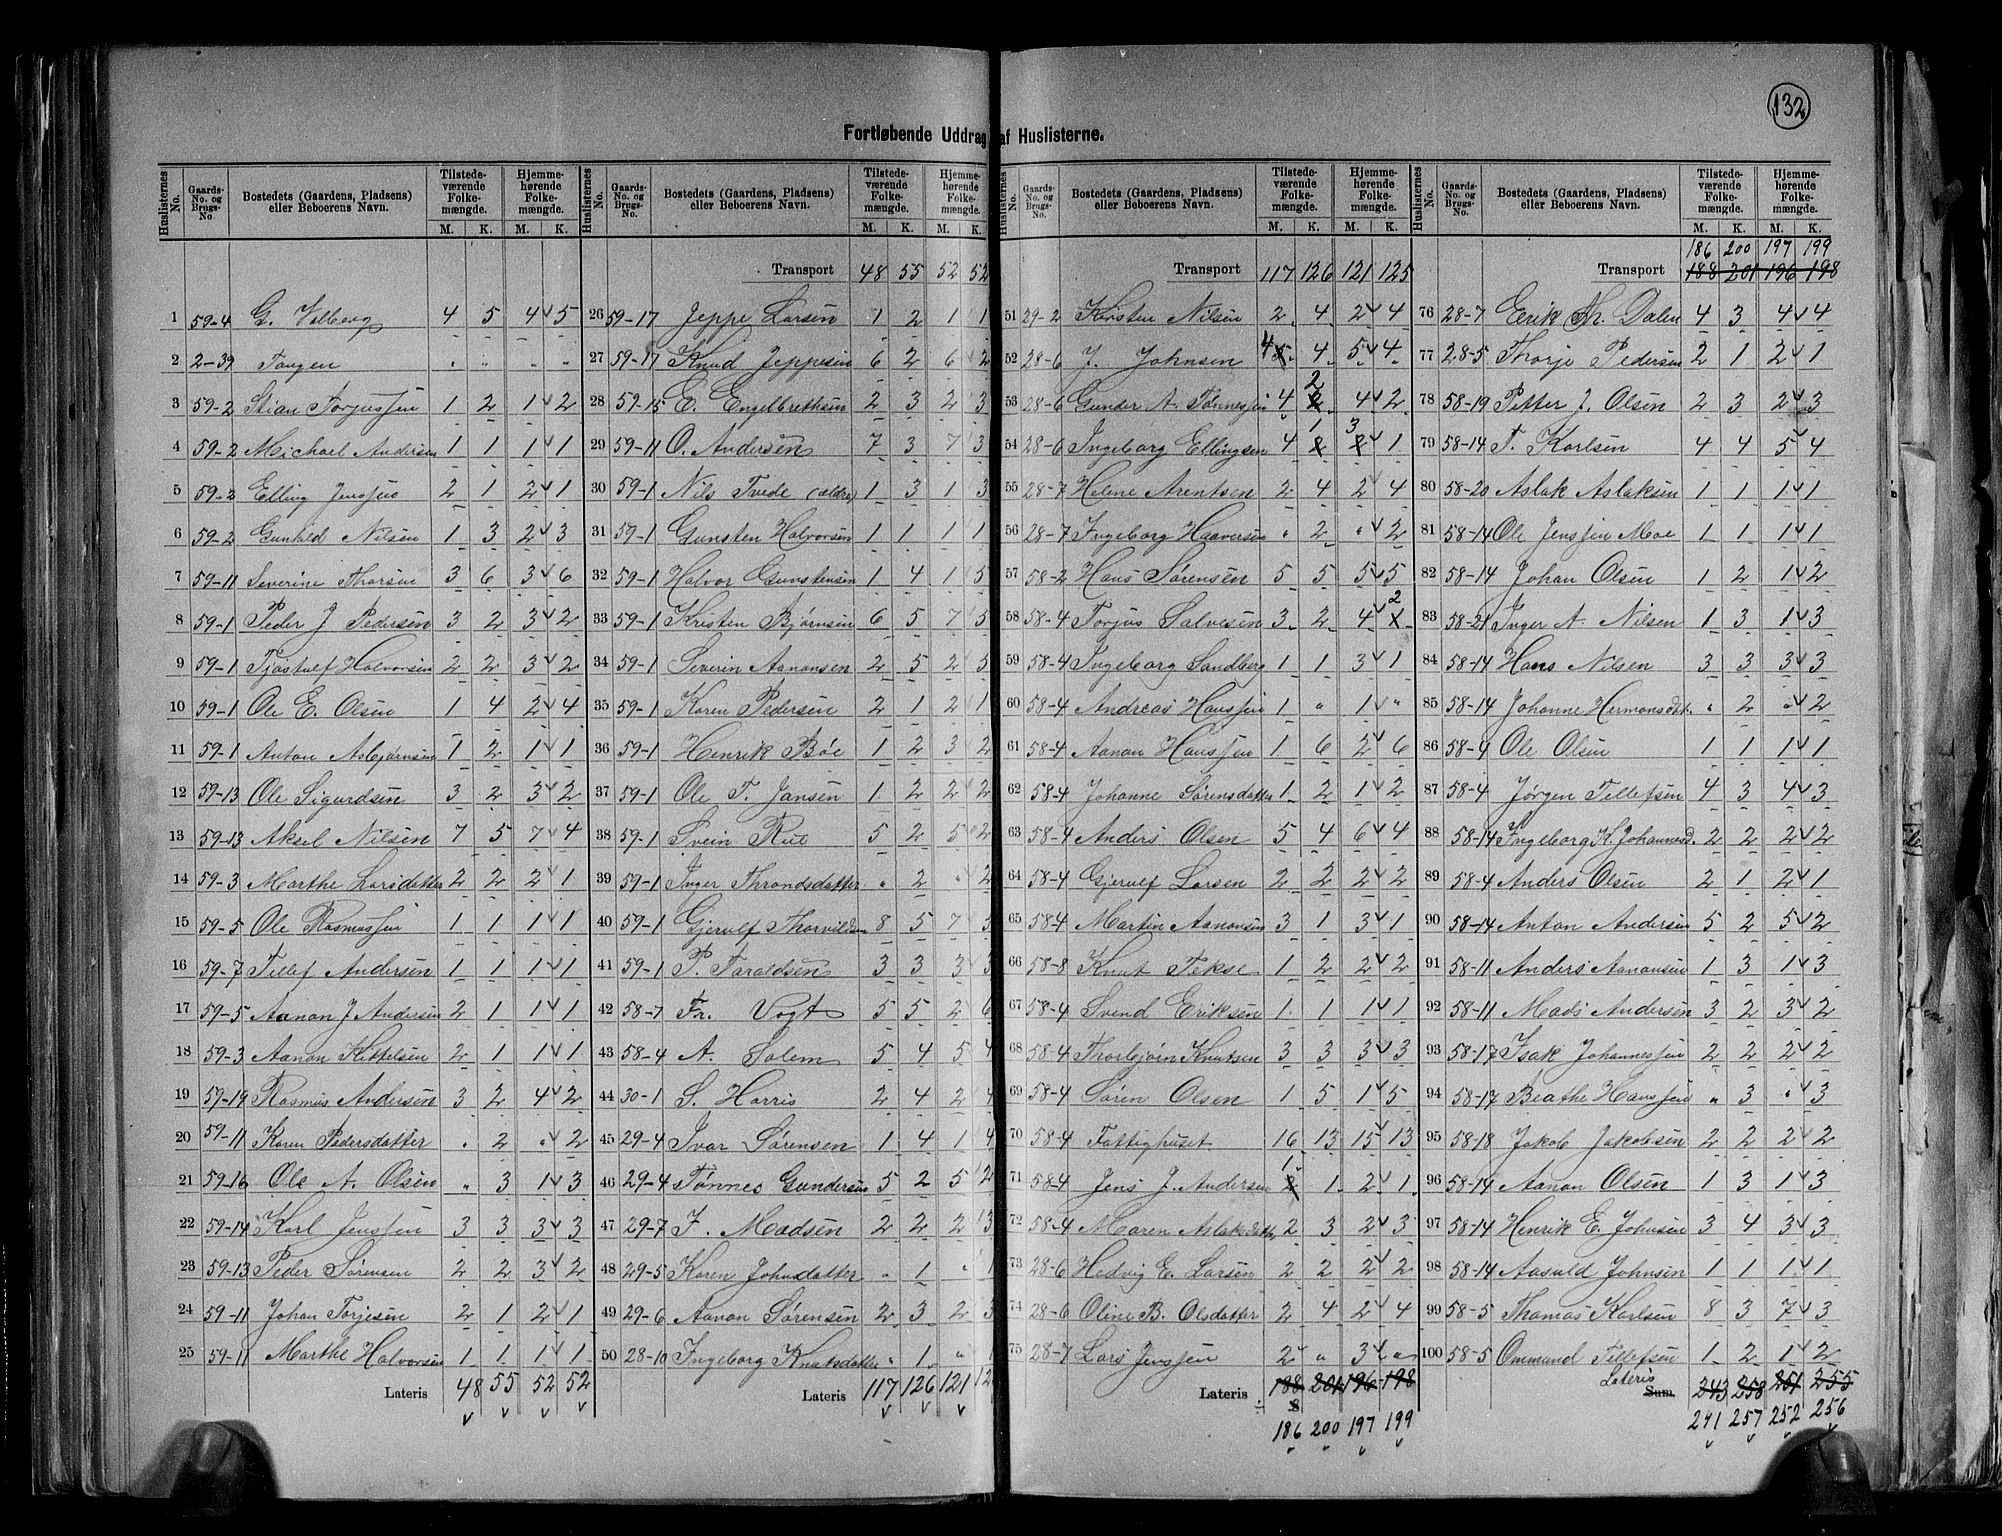 132
Fortløbende Uddrag af Huslisterne.
Huslisternes No. Gaards-No. og Brugs-No Bostedets (Gaardens, Pladsens) eller Beboerens Navn. Tilstedeværende Folkemængde. M. K. Hjemmehørende Folkemængde. M. K.
1 59-4 G. Valberg 4 5 4 5
2 2-39 Tangen " " " "
3 59-2 Stian Torjussen 1 2 1 2
4 59-2 Michael Andersen 1 1 1 1
5 59-2 Elling Jenssen 2 1 2 1
6 59-2 Gunhild Nilsen 1 3 2 3
7 59-11 Severine Thorsen 3 6 3 6
8 59-1 Peder J Pedersen 3 2 3 2
9 59-1 Tjøstulf Halvorsen 2 2 3 2
10 59-1 Ole E. Olsen 1 4 2 4
11 59-1 Anton Asbjørnsen 1 2 1 1
12 59-13 Ole Sigurdsen 3 2 3 2
13 59-13 Aksel Nilsen 7 5 7 4
14 59-3 Marthe Larsdatter 2 2 2 1
15 59-5 Ole Rasmussen 1 1 1 1
16 59-7 Tellef Andersen 1 1 1 1
17 59-5 Aanon J Andersen 2 1 1 1
18 59-3 Aanon Kittelsen 2 1 1 1
19 59-19 Rasmus Andersen 3 2 4 2
20 59-11 Karen Pedersdatter " 2 " 2
21 59-16 Ole A. Olsen " 3 1 3
22 59-14 Karl Jenssen 3 3 3 3
23 59-13 Peder Sørensen 2 2 3 2
24 59-11 Johan Torjesen 2 1 2 1
25 59-11 Marthe Halvorsen 1 1 1 1
Lateris 48 55 52 52
Huslisternes No. Gaards-No. og Brugs-No. Bostedets (Gaardens, Pladsens) eller Beboerens Navn. Tilstedeværende Folkemængde. M. K. Hjemmehørende Folkemængde. M. K.
Transport 48 55 52 52
26 59-17 Jeppe Larsen 1 2 1 1
27 59-17 Knud Jeppesen 6 2 6 2
28 59-15 E. Engelbrethsen 2 3 2 3
29 59-11 O. Andersen 7 3 7 3
30 59-1 Nils Tvede (ældre) 1 3 1 3
31 59-1 Gunsten Halvorsen 1 1 1 1
32 59-1 Halvor Gunstensen 1 4 1 5
33 59-1 Kristen Bjørnsen 6 5 7 5
34 59-1 Severin Aanonsen 2 5 2 5
35 59-1 Karen Pedersen 2 1 2 1
36 59-1 Henrik Bøe 1 2 3 2
37 59-1 Ole T. Jansen 1 2 2 2
38 59-1 Svein Rue 5 2 5 2
39 59-1 Inger Throndsdatter " 2 " 2
40 59-1 Gjerulf Thorvildsen 8 5 7 5
41 59-1 P. Taraldsen 3 3 3 3
42 58-7 Fr. Vogt 5 5 2 6
43 58-4 A. Solem 5 4 5 4
44 30-1 S. Harris 2 4 2 4
45 29-4 Ivar Sørensen 1 4 1 4
46 29-4 Tønnes Gundersen 5 2 5 2
47 29-7 F. Madsen 2 2 2 3
48 29-5 Karen Johnsdatter " 1 " 1
49 29-6 Aanon Sørensen 2 3 2 3
50 28-10 Ingeborg Knutsdatter " 1 " 1
Lateris 117 126 121 12
Huslisternes No. Gaards-No. og Brugs-No. Bostedets (Gaardens, Pladsens) eller Beboerens Navn. Tilstedeværende Folkemængde. M. K. Hjemmehørende Folkemængde. M. K.
Transport 117 126 121 125
51 29-2 Kirsten Nilsen 2 4 2 4
52 28-6 J. Johnsen 4 4 5 4
53 28-6 Gunder A. Tønnessen 4 2 4 2
54 28-6 Ingeborg Ellingsen 4 1 3 1
55 28-7 Helene Arentsen 2 4 2 4
56 28-7 Ingeborg Haaversen " 2 " 2
57 58-2 Hans Sørensen 5 5 5 5
58 58-4 Torjus Salvesen 3 2 4 2
59 58-4 Ingeborg Sandberg 1 1 3 1
60 58-4 Andreas Hanssen 1 " 1 "
61 58-4 Aanon Hanssen 1 6 2 6
62 58-4 Johanne Sørensdatter 1 2 1 2
63 58-4 Anders Olsen 5 4 6 4
64 58-4 Gjerulf Larsen 2 2 2 2
65 58-4 Martin Aanonsen 3 1 3 1
66 58-8 Knut Tekse 1 2 2 2
67 58-4 Svend Eriksen 1 1 1 1
68 58-4 Thorbjørn Knutsen 3 3 3 3
69 58-4 Søren Olsen 1 5 1 5
70 58-4 Fattighuset 16 13 15 13
71 58-4 Jens J. Andersen 1 1 2 1
72 58-4 Maren Aslaksdatter 2 3 2 3
73 28-6 Hedvig E. Larsen 2 2 2 2
74 28-6 Oline B. Olsdatter 2 4 2 4
75 28-7 Lars Jenssen 2 " 3 "
Lateris 188 201 196 198
186 200 197 199
Huslisternes No. Gaards-No. og Brugs-No. Bostedets (Gaardens, Pladsens) eller Beboerens Navn. Tilstedeværende Folkemængde. M. K. Hjemmehørende Folkemængde. M. K.
186 200 197 199
Transport 188 201 196 198
76 28-7 Eerik Th. Dalen 4 3 4 4
77 28-5 Thorje Pedersen 2 1 2 1
78 58-19 Petter J. Olsen 2 3 2 3
79 58-14 T. Karlsen 4 4 5 4
80 58-20 Aslak Aslaksen 1 1 1 1
81 58-14 Ole Jenssen Moe 1 1 1 1
82 58-14 Johan Olsen 1 2 1 2
83 58-21 Inger A. Nilsen 1 3 1 3
84 58-14 Hans Nilsen 3 3 3 3
85 58-14 Johanne Hermansdat. " 2 " 2
86 58-4 Ole Olsen 1 1 1 1
87 58-4 Jørgen Tellefsen 4 3 4 3
88 58-14 Ingeborg K. Johannesd. 2 2 2 2
89 58-4 Anders Olsen 2 1 2 1
90 58-14 Anton Andersen 5 2 5 2
91 58-11 Anders Aanonsen 1 3 1 3
92 58-11 Mads Andersen 3 2 3 2
93 58-17 Isak Johannessen 2 2 2 2
94 58-17 Beathe Hanssen " 3 " 3
95 58-18 Jakob Jakobsen 2 2 2 2
96 58-14 Aanon Olsen 1 3 1 3
97 58-14 Henrik E. Johnsen 3 4 3 3
98 58-14 Aasuld Johnsen 1 1 1 1
99 58-5 Thomas Karlsen 8 3 7 3
100 58-5 Ommund Tellefsen 1 2 1 2
Lateris
Sum. 243 258 251 255
241 257 252 256